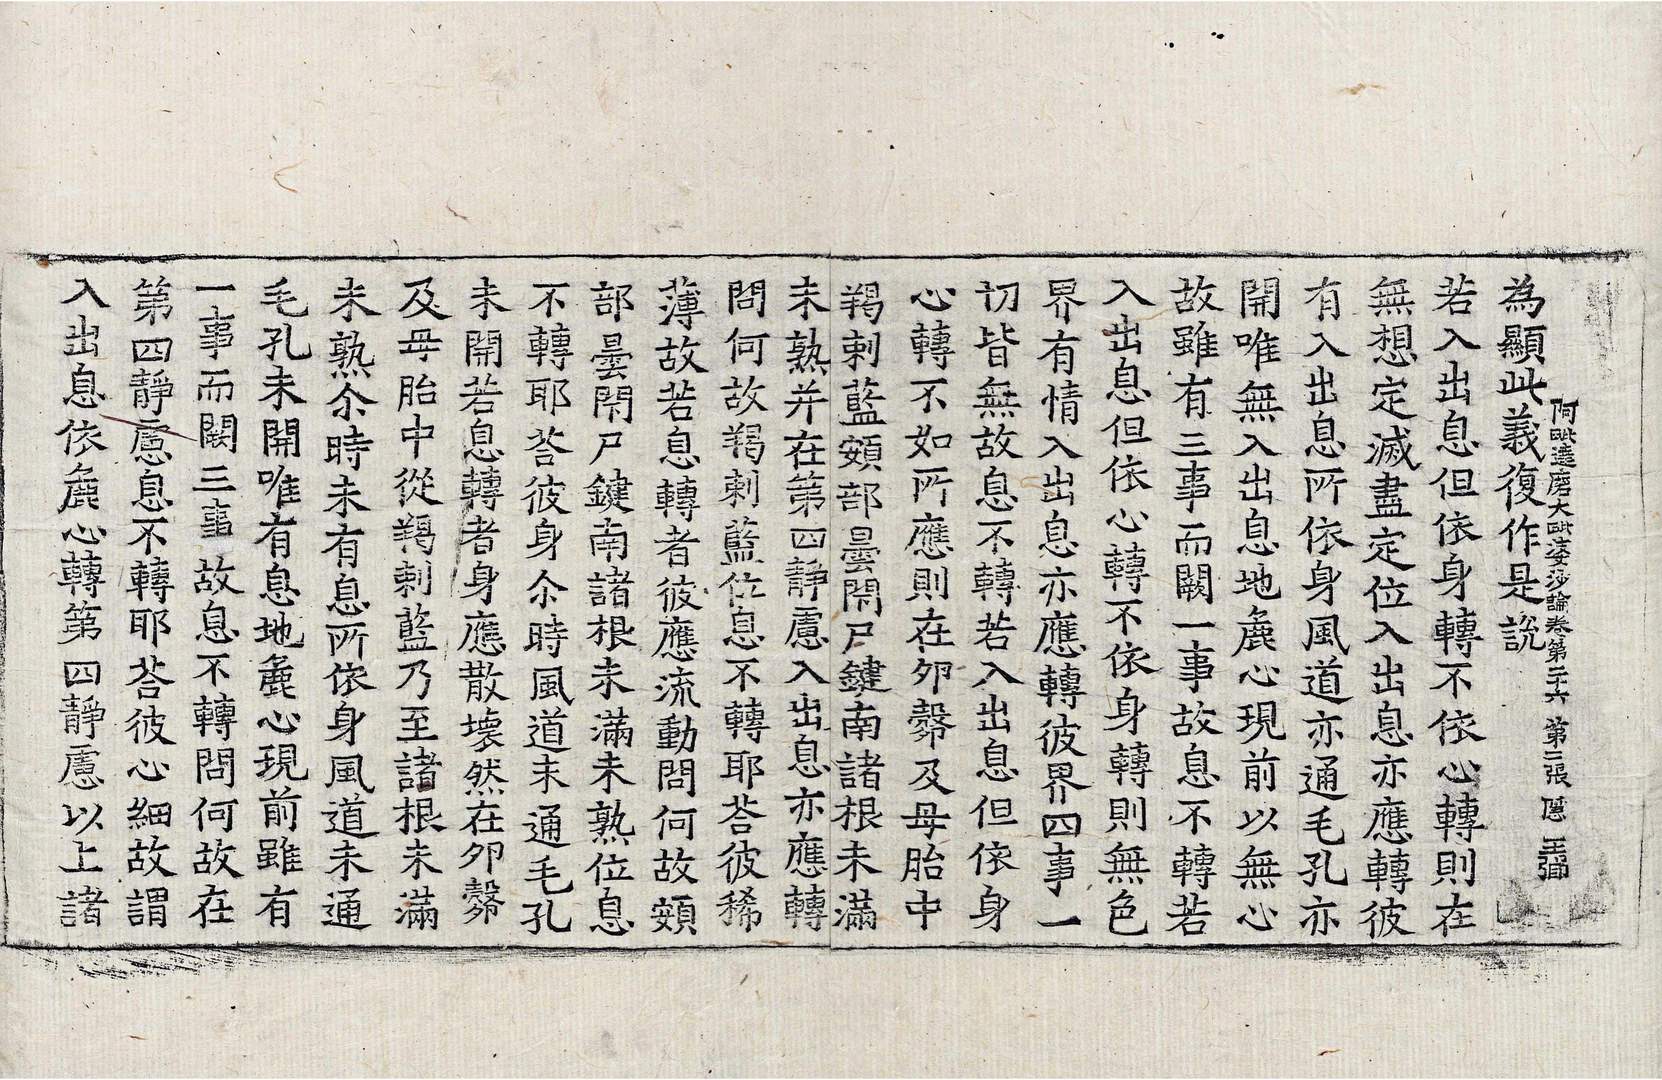 為顯此義復作是說
阿毗達磨大毗婆沙論卷第二十六 第二張 隱 王㢸
若入出息但依身轉不依心轉則在
無想定滅盡定位入出息亦應轉彼
有入出息所依身風道亦通毛孔亦
開唯無入出息地麁心現前以無心
故雖有三事而闕一事故息不轉若
入出息但依心轉不依身轉則無色
界有情入出息亦應轉彼界四事一
切皆無故息不轉若入出息但依身
心轉不如所應則在卵㲉及母胎中
羯剌藍頞部曇閇尸鍵南諸根未滿
未熟并在第四靜慮入出息亦應轉
問何故羯剌藍位息不轉耶荅彼稀
薄故若息轉者彼應流動問何故頞
部曇閇尸鍵南諸根未滿未熟位息
不轉耶荅彼身尒時風道未通毛孔
未開若息轉者身應散壞然在卵㲉
及母胎中從羯剌藍乃至諸根未滿
未熟尒時未有息所依身風道未通
毛孔未開唯有息地麁心現前雖有
一事而闕三事故息不轉問何故在
第四靜慮息不轉耶荅彼心細故謂
入出息依麁心轉第四靜慮以上諸